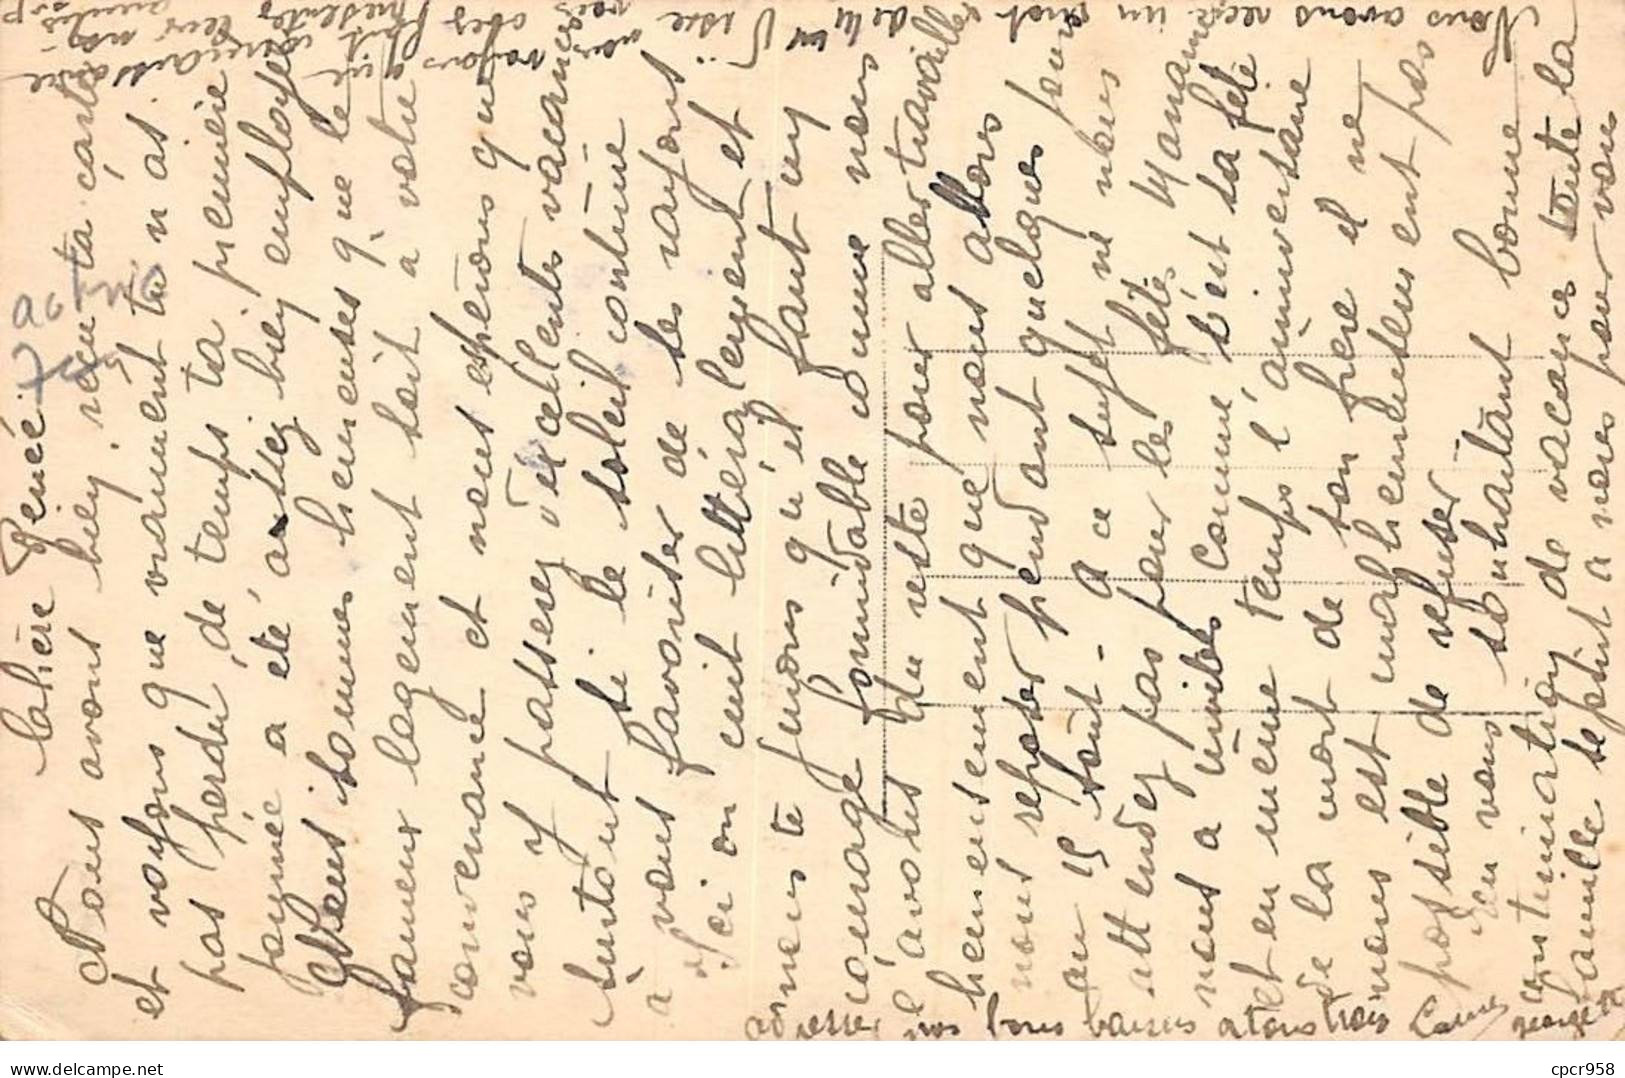 Ma chère Renée.
Nous avons bien reçu ta carte
et voyons que vraiment tu n'as
pas perdu de temps ta première
journée a été assez bien employée
Nous sommes heureuses que le
fameux logement soit à votre
convenance et nous espérons que
vous y passerez d'excellentes vacances
surtout si le soleil continue
à vous favoriser de ses rayons
Ici on cuit littéralement et
nous te jurons qu'il faut un
courage formidable comme nous
l'avons du reste pour aller travailler
heureusement que nous allons
nous reposer pendant quelques jours
au 15 août - a ce sujet ne nous
attendez pas pour les fêtes Maman
nous a invitées comme c'est sa fête
et en même temps l'anniversaire
de la mort de ton frère il ne
nous est malheureusement pas
possible de refuser -
En vous souhaitant bonne
continuation de vacances toute la
famille se joint a nous pour vous
adresser nos bons baisers a tous trois
Georgette
Nous avons reçu un mot de
nous voyons qu'il fait connaissance
vous chez présentez leur nos
amitiés
cpcr958